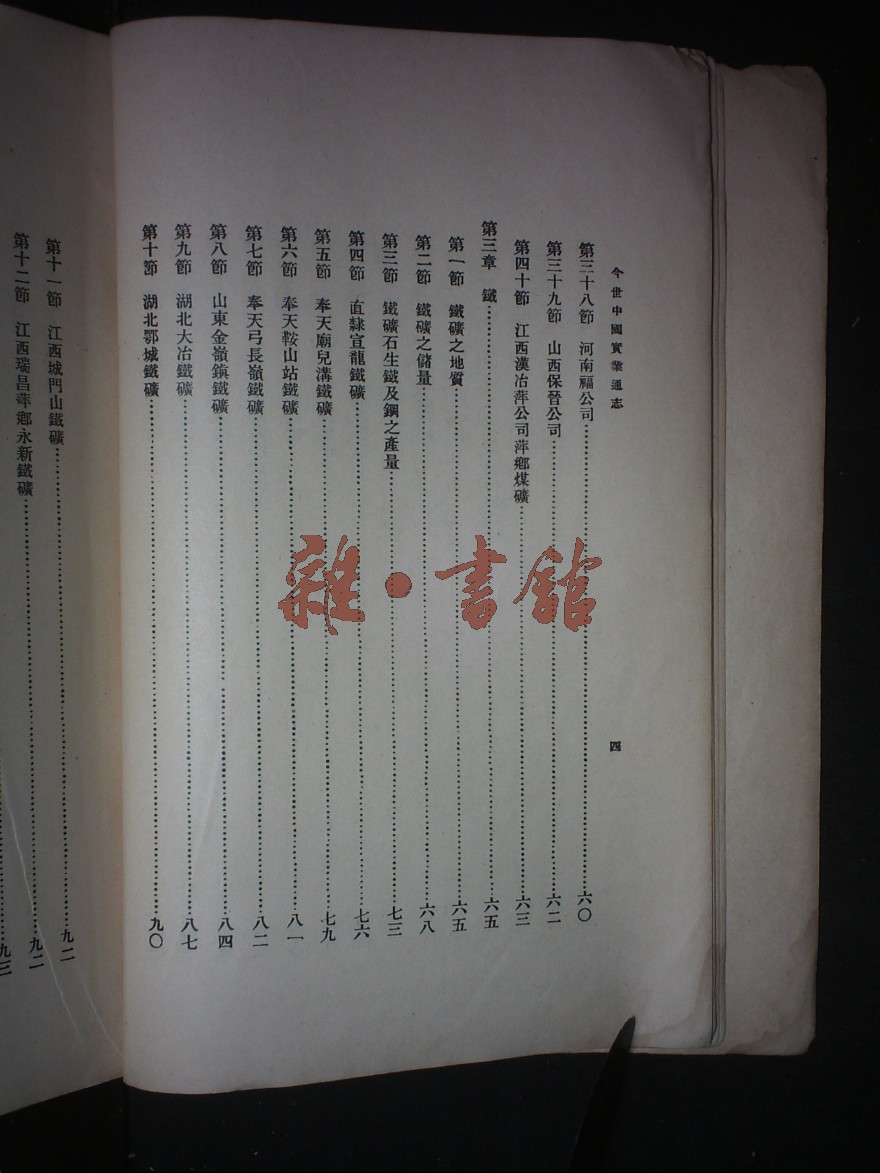 今世中國實業通志
四
第三十八節 河南福公司……六〇
第三十九節 山西保晉公司……六二
第四十節 江西漢冶萍公司萍鄉煤礦……六三
第三章 鐵……六五
第一節 鐵礦之地質……六五
第二節 鐵礦之儲量……六八
第三節 鐵礦石生鐵及鋼之產量……七三
第四節 直隸宣龍鐵礦……七六
第五節 奉天廟兒溝鐵礦……七九
第六節 奉天鞍山站鐵礦……八一
第七節 奉天弓長嶺鐵礦……八二
第八節 山東金嶺鎮鐵礦……八四
第九節 湖北大冶鐵礦……八七
第十節 湖北鄂城鐵礦……九〇
第十一節 江西城門山鐵礦……九二
第十二節 江西瑞昌萍鄉永新鐵礦……九二
雜·書館